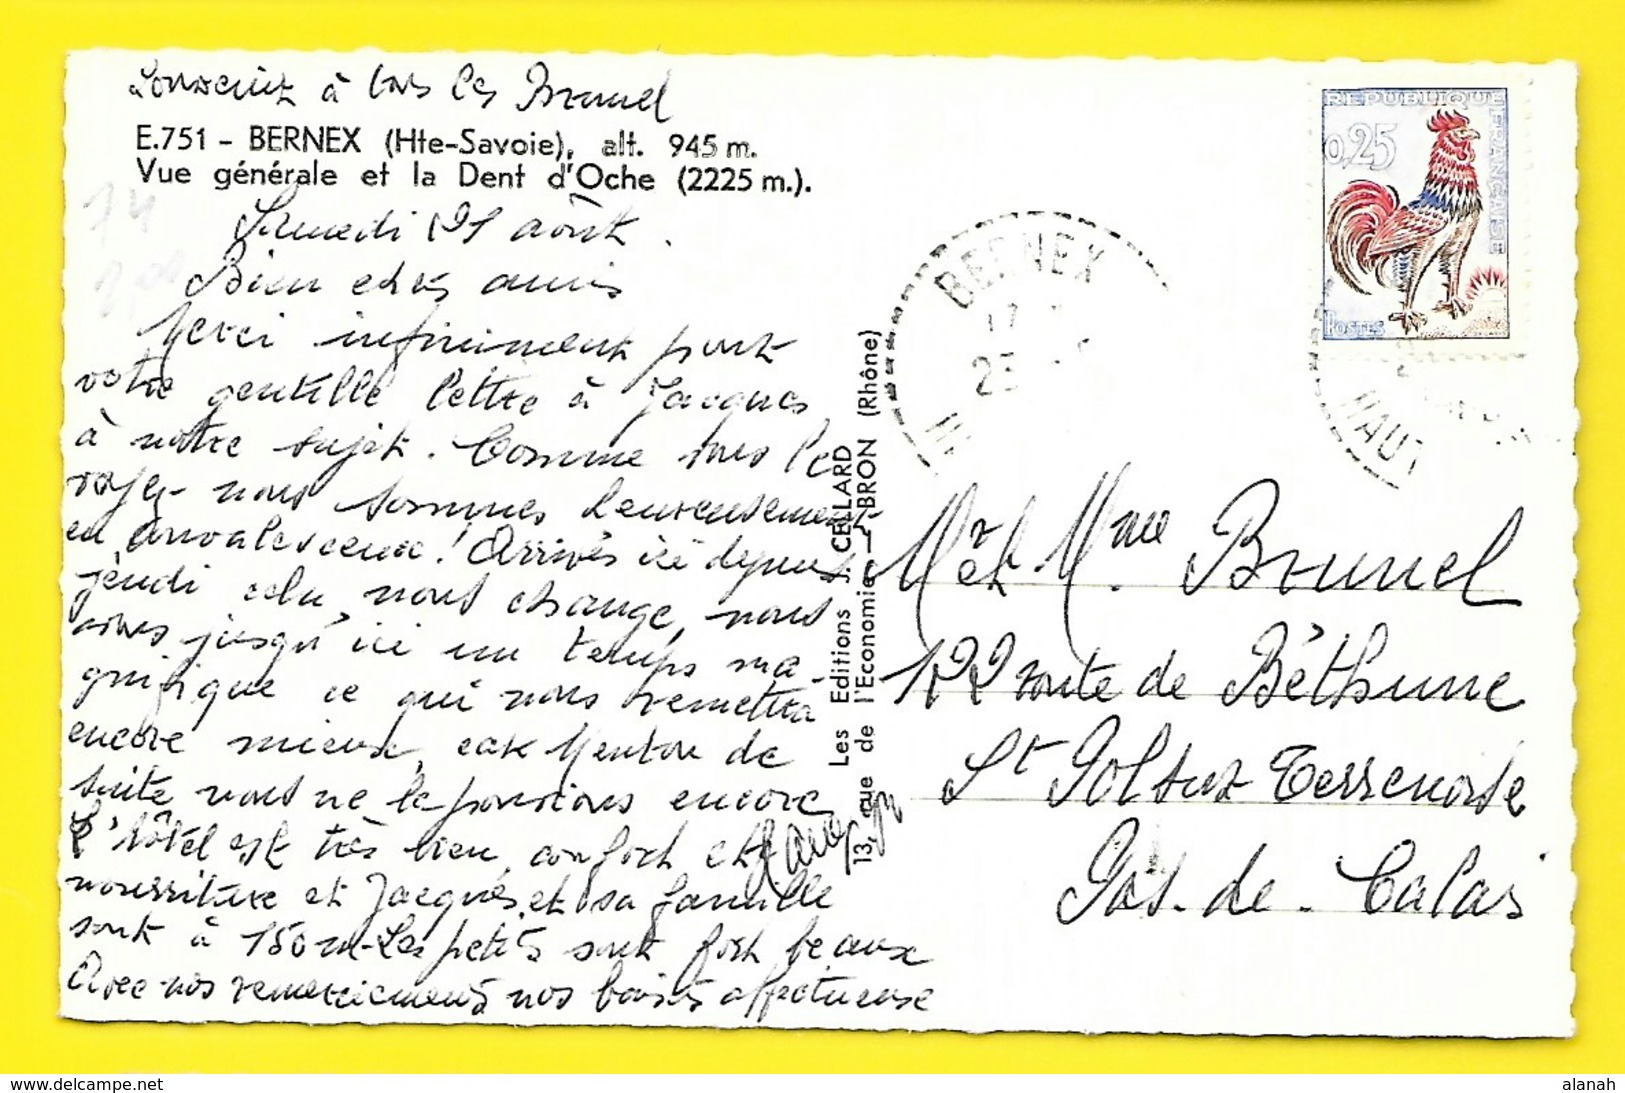 Souvenir à tous les Brunel
E.751 - BERNEX (Hte-Savoie), alt. 945 m.
Vue générale et la Dent d'Oche (2225 m.).
74
Samedi 21 août.
Bien chers amis
Merci infiniment pour
votre gentille lettre à Jacques
à notre sujet. Comme vous le
voyez nous sommes heureusement
en convalescence! Arrivés ici depuis
jeudi cela nous change, nous
avons jusqu'ici un temps ma-
gnifique ce qui nous remettra
encore mieux, car Menton de
suite nous ne le pouvions encore
L'hôtel est très bien, confort et
nourriture et Jacques et sa famille
sont à 150 m. Les petits sont fort beaux
Avec nos remerciements nos baisers affectueux
Les Editions J. CELLARD
13, rue de l'Economie - BRON (Rhône)
REPUBLIQUE FRANÇAISE
0,25
POSTES
BERNEX
17
23
HAUT
Mr et Mme Brunel
122 route de Béthune
St Pol sur Ternoise
Pas-de-Calais
delcampe.net
alanah